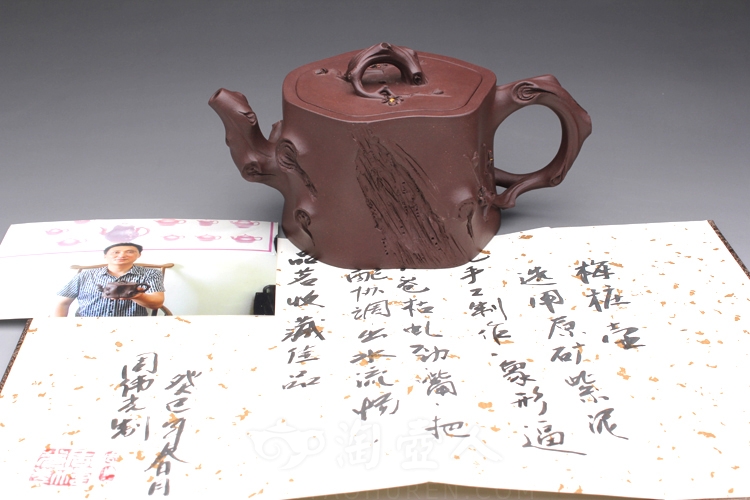 梅桩壶
选用原矿紫泥
手工制作。象形逼
苍枯虬劲嘴把
配协调出水流畅
品茗收藏佳品
癸巳年春月
周伟志制
淘壶人